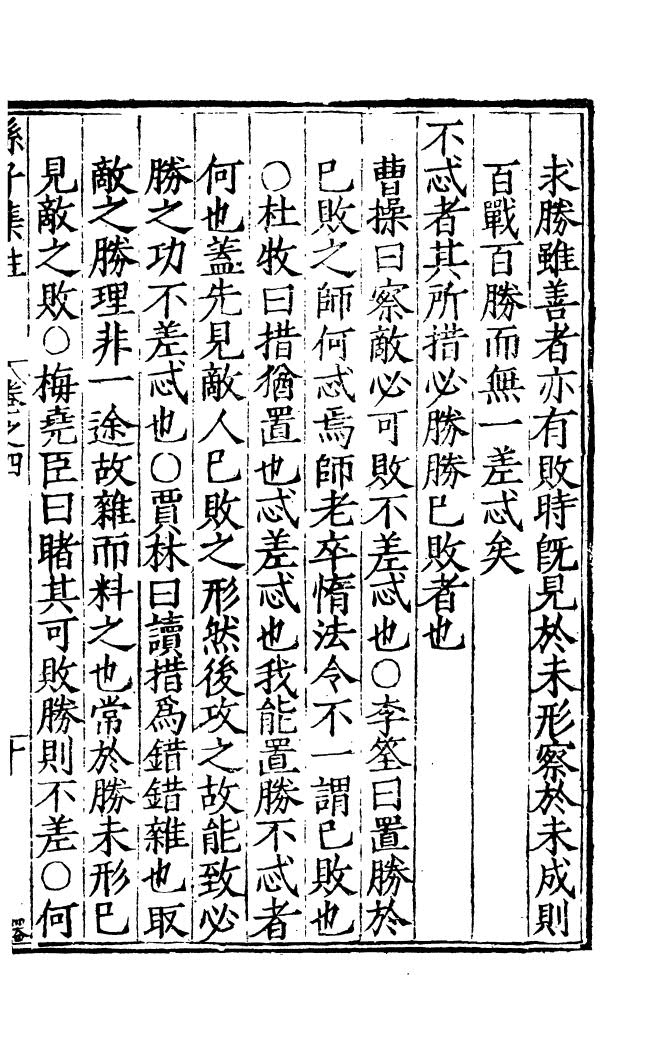 求勝雖善者亦有敗時旣見於未形察於未成則
百戰百勝而無一差忒矣
不忒者其所措必勝勝已敗者也
曹操曰察敵必可敗不差忒也○李筌曰置勝於
已敗之師何忒焉師老卒惰法令不一謂已敗也
○杜牧曰措猶置也忒差忒也我能置勝不忒者
何也蓋先見敵人已敗之形然後攻之故能致必
勝之功不差忒也○賈林曰讀措爲錯錯雜也取
敵之勝理非一途故雜而料之也常於勝未形已
見敵之敗○梅堯臣曰睹其可敗勝則不差○何
孫子集註 卷之四 十